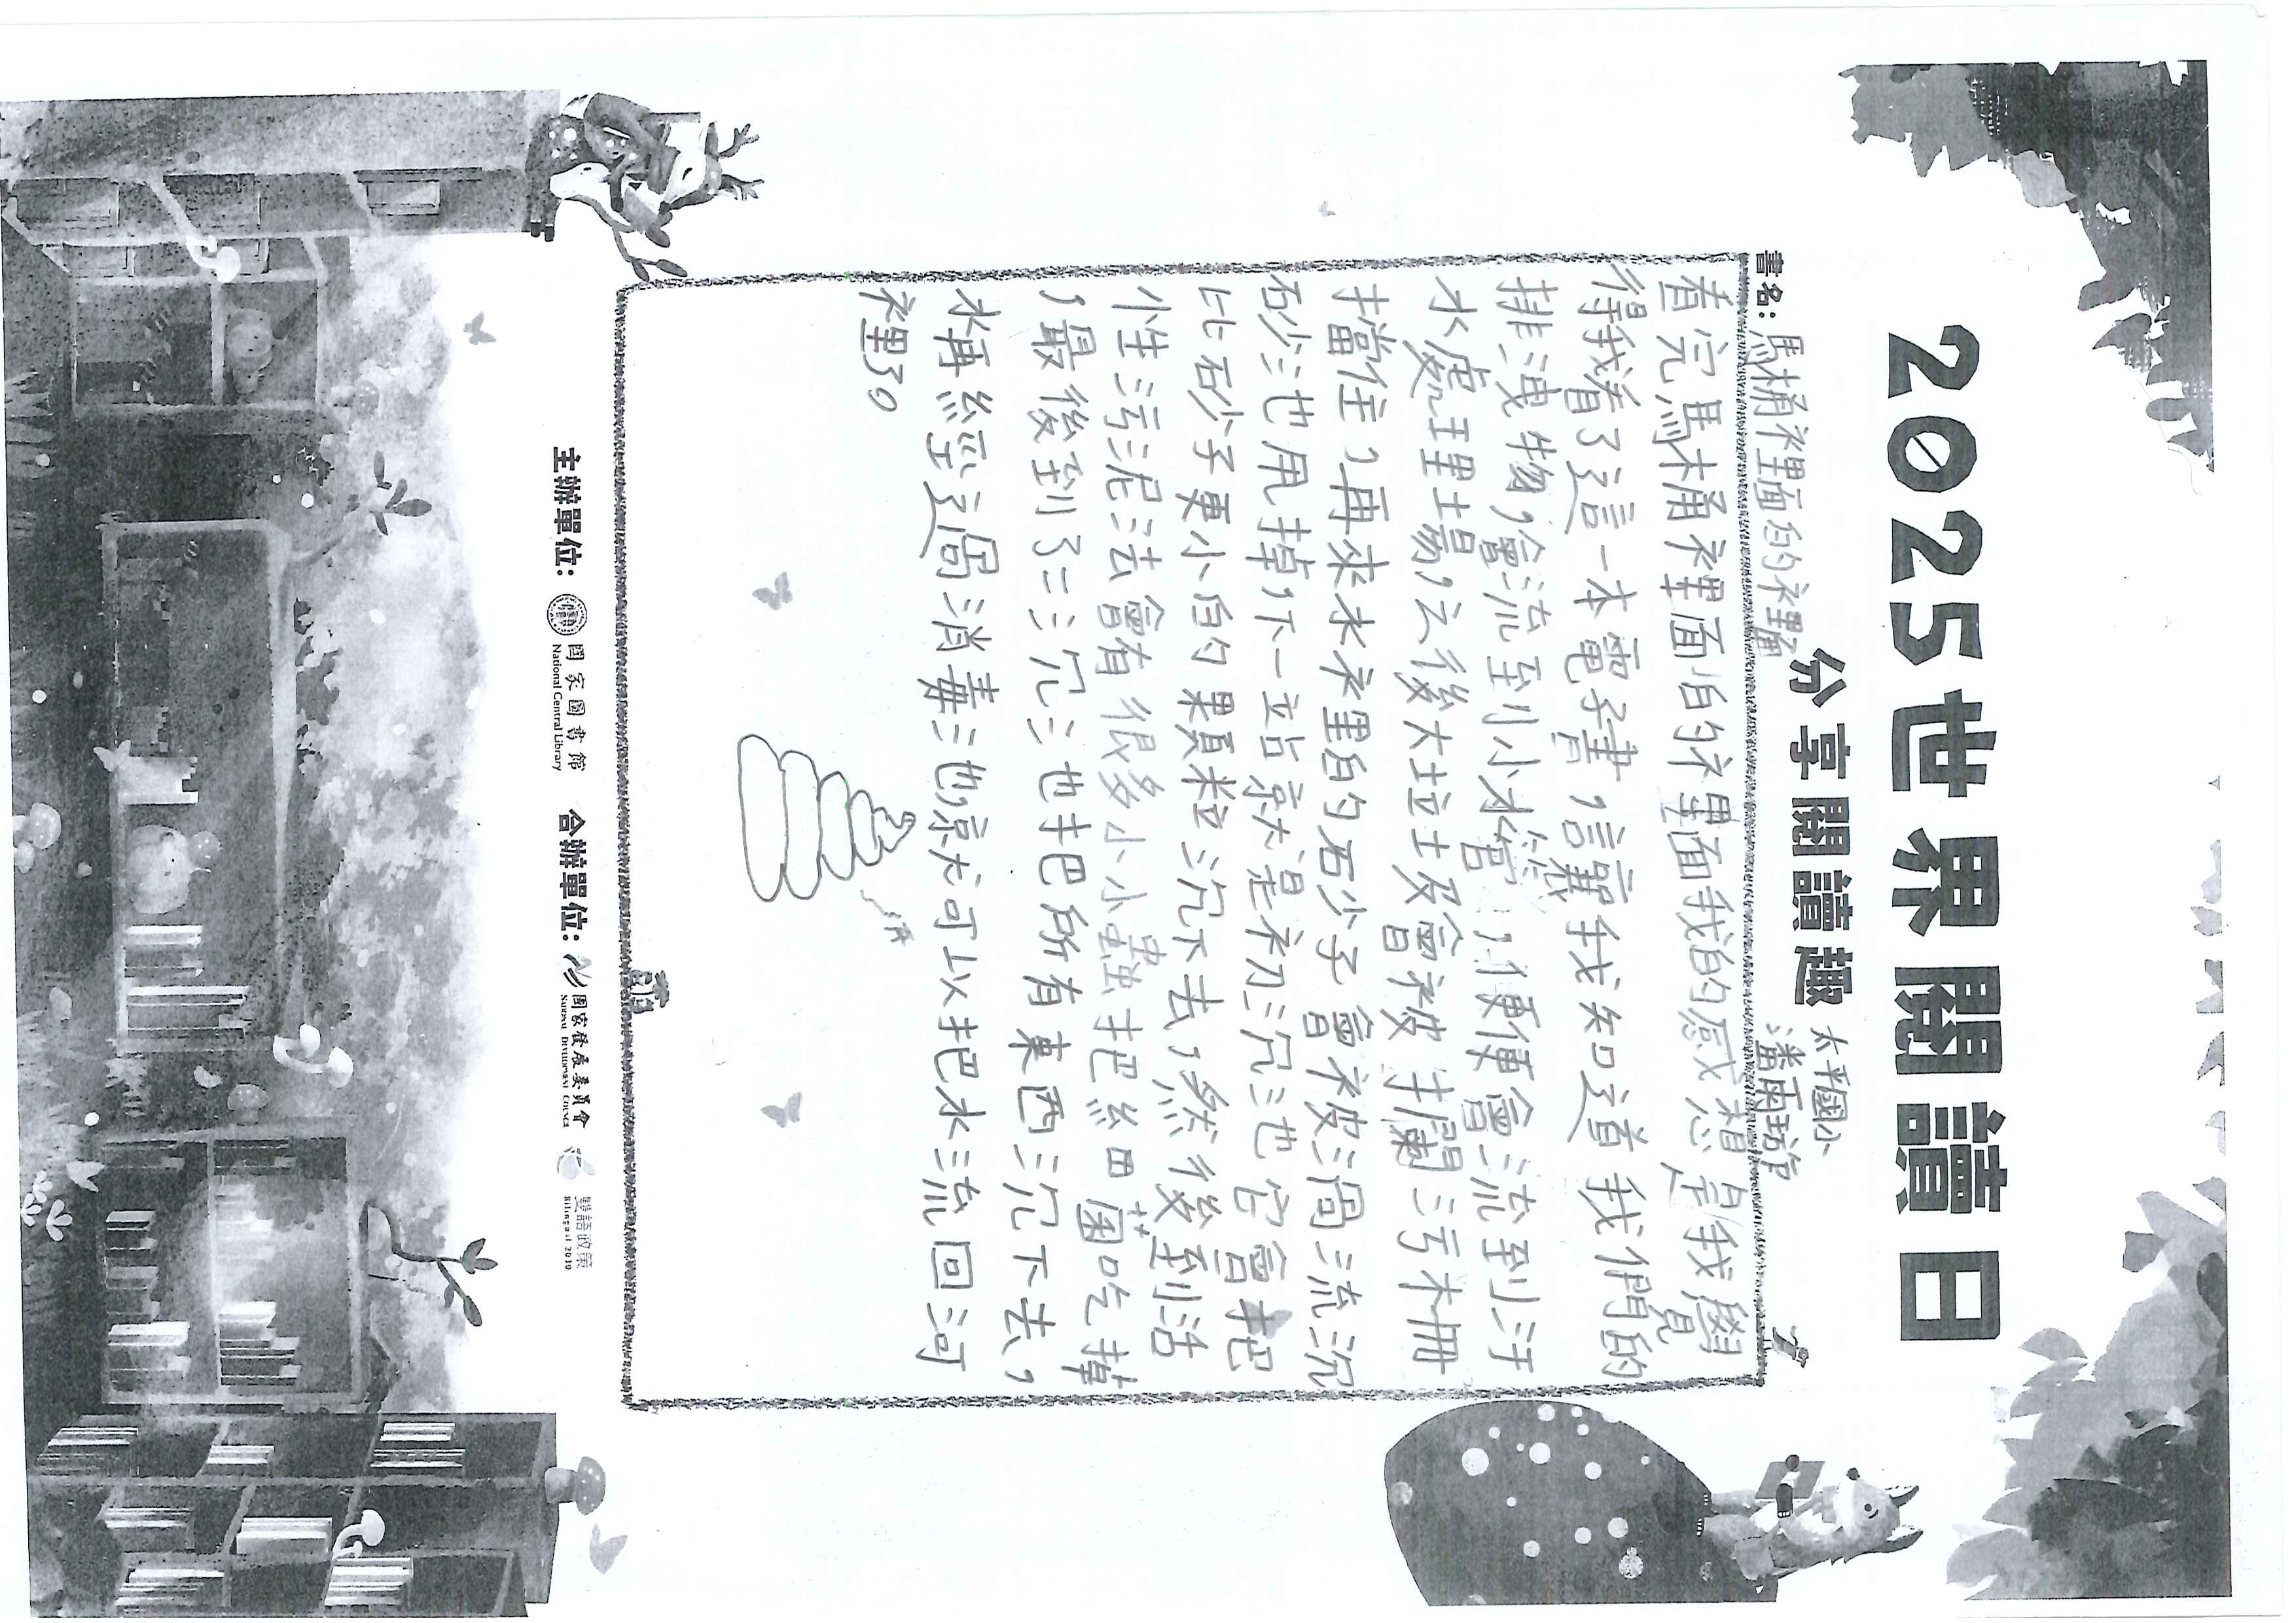 2025世界閱讀日
分享閱讀趣
太平國小
書名：馬桶裡面的裡面
潘雨琀
看完馬桶裡面的裡面我的感想是我覺
得我看了這一本電子書，讓我知道我們的
排洩物，會流到小水管，便便會流到汙
水處理場，然後大垃圾會被攔污柵
擋住，再來水裡的石少子會被渦流沉
石少池甩掉，下一站就是初沉池它會把
比石少子更小的顆粒沉下去，然後到活
性污泥法會有很多小小蟲把細菌吃掉
，最後到了二沉池把所有東西沉下去，
水再經過消毒池就可以把水流回河
裡了。
主辦單位：國家圖書館
National Central Library
合辦單位：國家發展委員會
NATIONAL DEVELOPMENT COUNCIL
雙語政策
Bilingual 2030